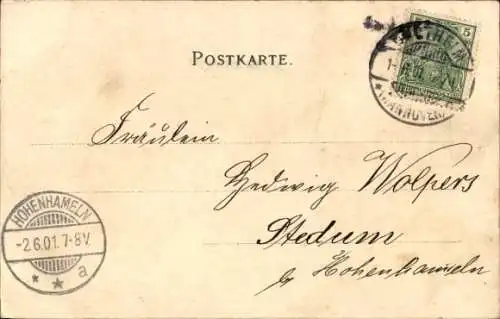 POSTKARTE.
5
1.6.01.
(HANNOVER)
Fräulein
Hedwig Wolpers
Stedum
by Hohenhameln
HOHENHAMELN
-2.6.01.7-8V.
* * a